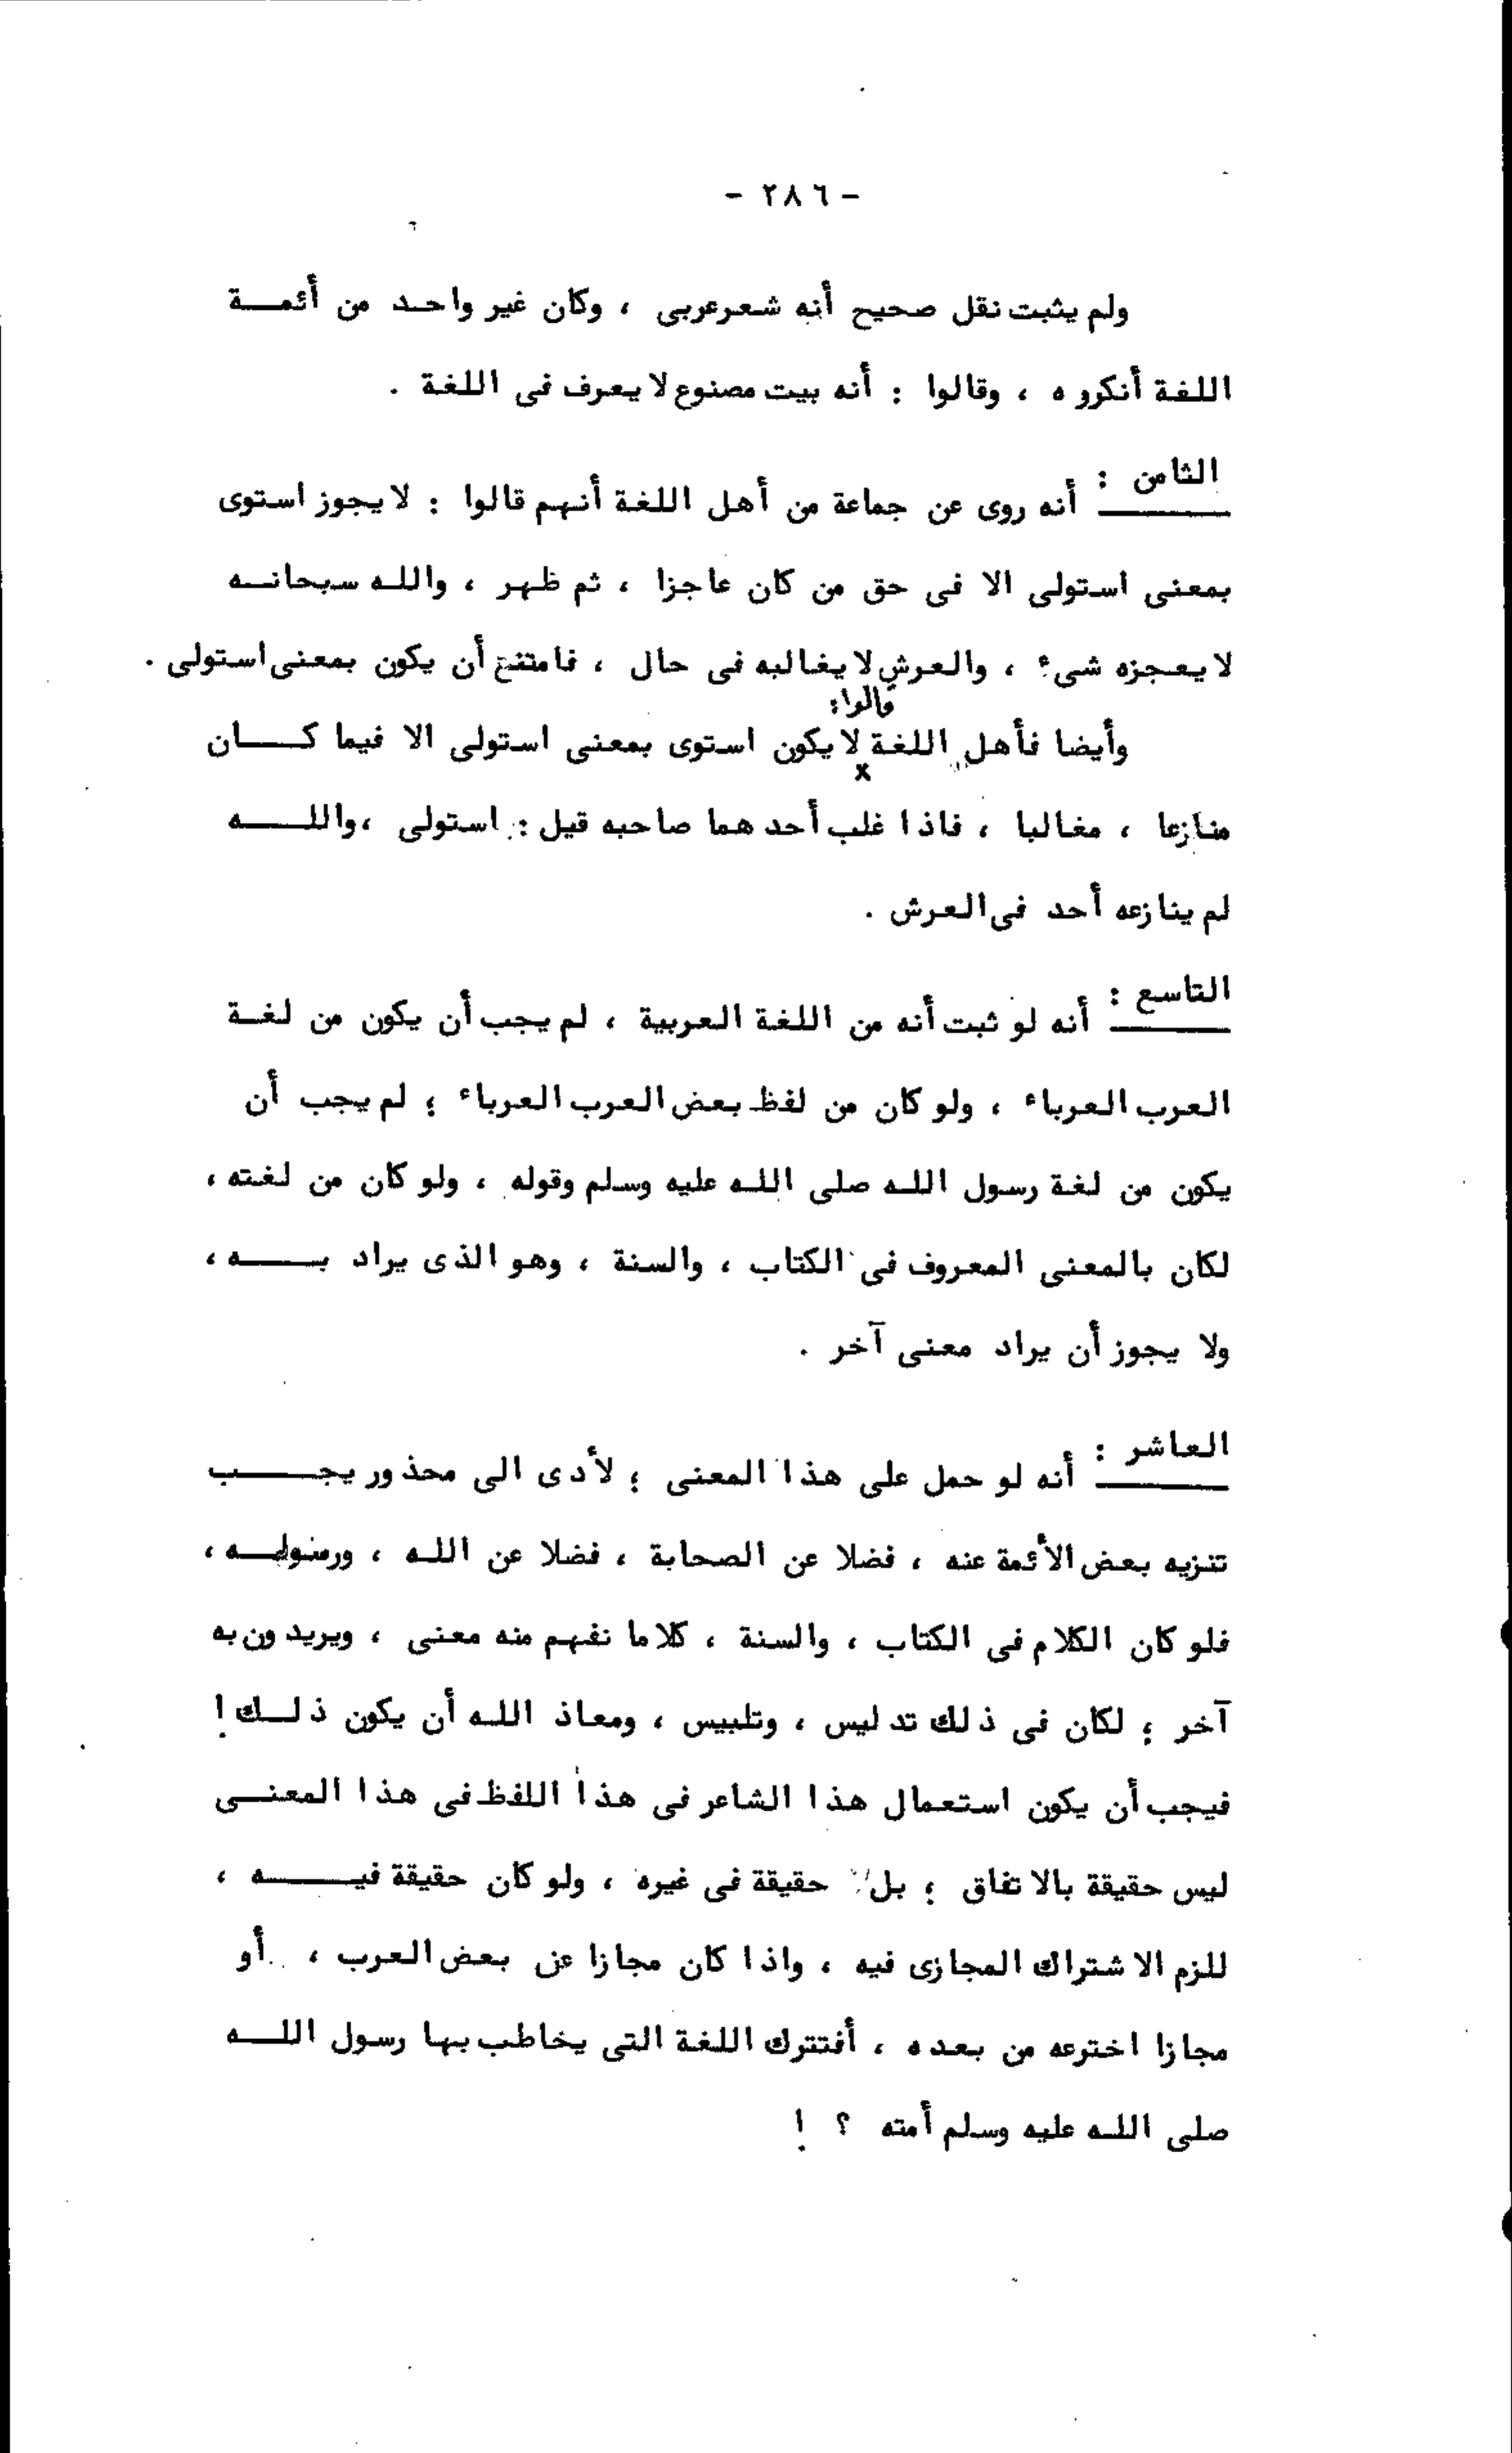 - ٢٨٦ -
ولم يثبت نقل صحيح أنه شعر عربى ، وكان غير واحد من أئمة
اللغة أنكروه ، وقالوا : أنه بيت مصنوع لا يعرف فى اللغة .
الثامن : أنه روى عن جماعة من أهل اللغة أنهم قالوا : لا يجوز استوى
بمعنى استولى الا فى حق من كان عاجزا ، ثم ظهر ، والله سبحانه
لا يعجزه شىء ، والعرش لا يغالبه فى حال ، فامتنع أن يكون بمعنى استولى .
قالوا:
وأيضا فأهل اللغة لا يكون استوى بمعنى استولى الا فيما كان
x
منازعا ، مغالبا ، فاذا غلب أحدهما صاحبه قيل : استولى ، والله
لم ينازعه أحد فى العرش .
التاسع : أنه لو ثبت أنه من اللغة العربية ، لم يجب أن يكون من لغة
العرب العرباء ، ولو كان من لفظ بعض العرب العرباء ؛ لم يجب أن
يكون من لغة رسول الله صلى الله عليه وسلم وقوله ، ولو كان من لغته ،
لكان بالمعنى المعروف فى الكتاب ، والسنة ، وهو الذى يراد به ،
ولا يجوز أن يراد معنى آخر .
العاشر : أنه لو حمل على هذا المعنى ؛ لأدى الى محذور يجب
تنزيه بعض الأئمة عنه ، فضلا عن الصحابة ، فضلا عن الله ، ورسوله ،
فلو كان الكلام فى الكتاب ، والسنة ، كلاما نفهم منه معنى ، ويريدون به
آخر ؛ لكان فى ذلك تدليس ، وتلبيس ، ومعاذ الله أن يكون ذلك !
فيجب أن يكون استعمال هذا الشاعر فى هذا اللفظ فى هذا المعنى
ليس حقيقة بالاتفاق ؛ بل حقيقة فى غيره ، ولو كان حقيقة فيه ،
للزم الاشتراك المجازى فيه ، واذا كان مجازا عن بعض العرب ، أو
مجازا اخترعه من بعده ، أفتترك اللغة التى يخاطب بها رسول الله
صلى الله عليه وسلم أمته ؟ !